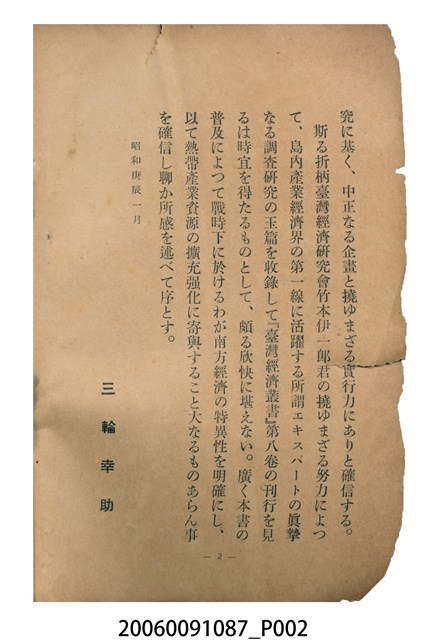 究に基く、中正なる企畫と撓ゆまざる實行力にありと確信する。
斯る折柄臺灣經濟研究會竹本伊一郎君の撓ゆまざる努力によつ
て、島內產業經濟界の第一線に活躍する所謂エキスパートの眞摯
なる調査硏究の玉篇を收錄して『臺灣經濟叢書』第八卷の刊行を見
るは時宜を得たるものとして、頗る欣快に堪えない。廣く本書の
普及によつて戰時下に於けるわが南方經濟の特異性を明確にし、
以て熱帶產業資源の擴充强化に寄與すること大なるものあらん事
を確信し聊か所感を述べて序とす。
昭和庚辰一月
三輪幸助
— 2 —
20060091087_P002